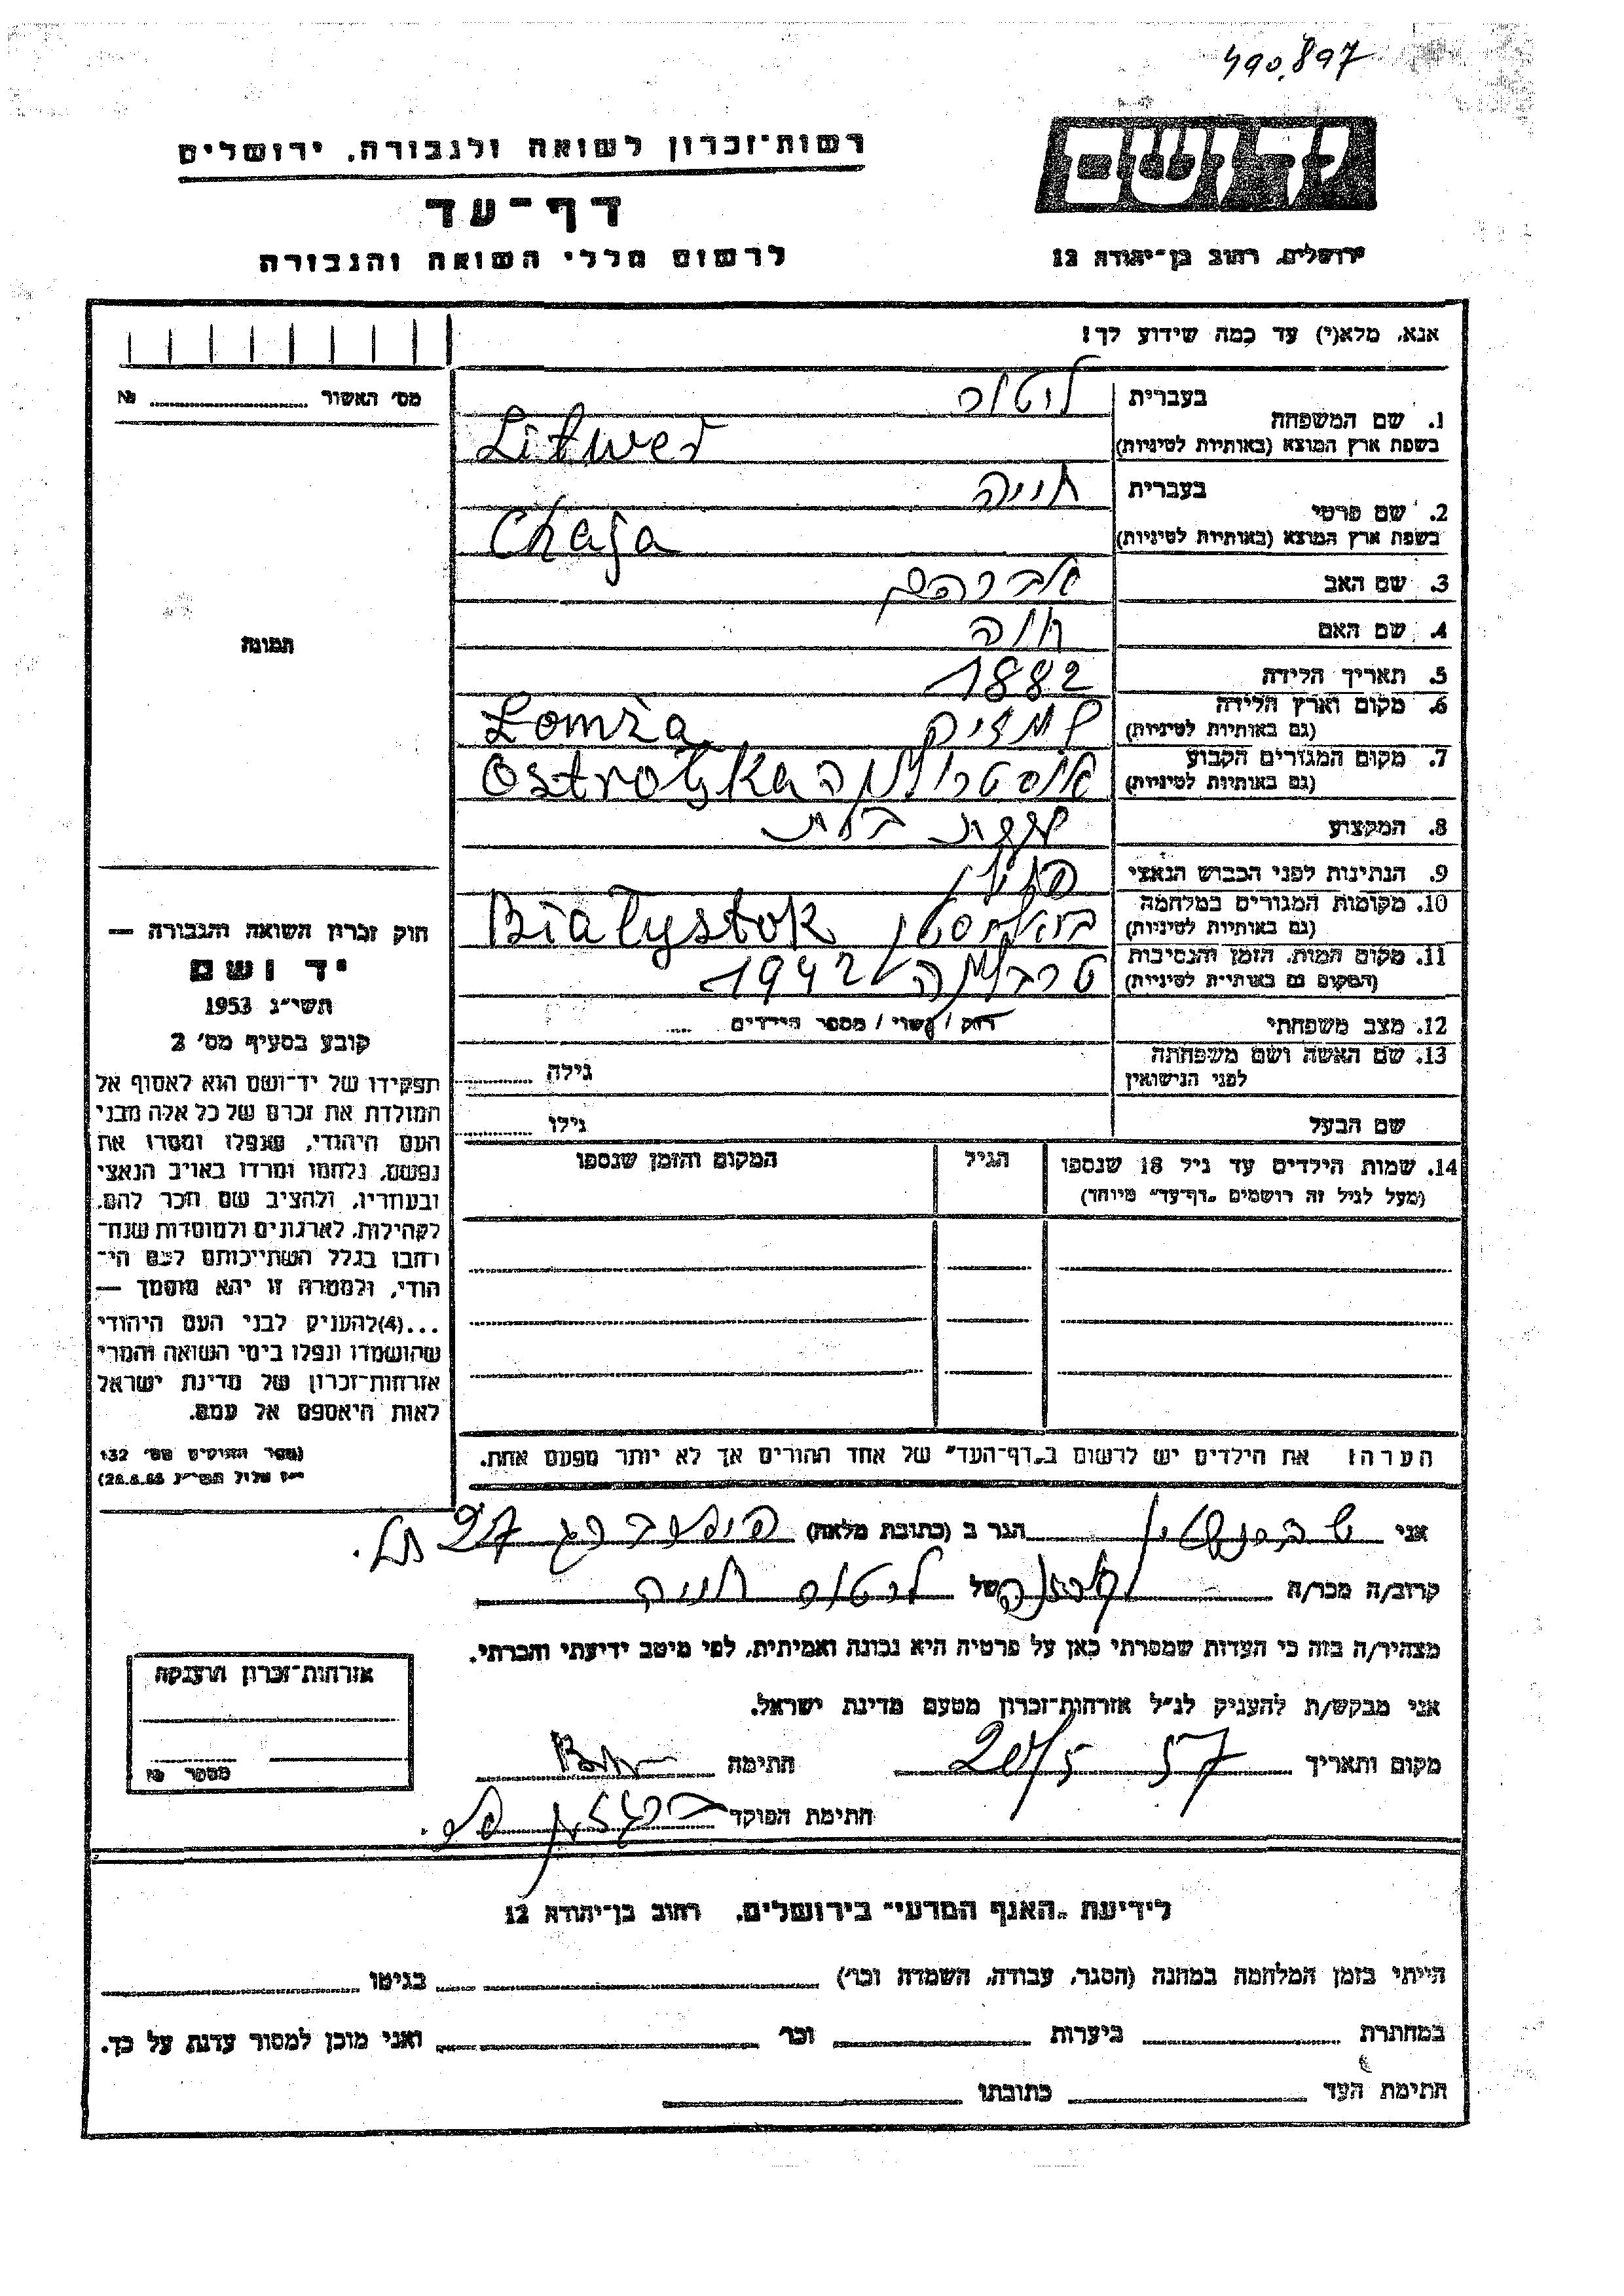 490.897
יד ושם
רשות־זכרון לשואה ולגבורה, ירושלים
דף־עד
לרשום חללי השואה והגבורה
ירושלים, רחוב בן־יהודה 12
אנא, מלא(י) עד כמה שידוע לך!
מס׳ האשור № 
1. שם המשפחה
בעברית
בשפת ארץ המוצא (באותיות לטיניות)
Litwer
2. שם פרטי
בעברית חייה
בשפת ארץ המוצא (באותיות לטיניות)
Chaja
3. שם האב אברהם
4. שם האם חוה
5. תאריך הלידה 1882
6. מקום וארץ הלידה
(גם באותיות לטיניות)
Łomża
7. מקום המגורים הקבוע
(גם באותיות לטיניות)
8. המקצוע עקרת בית
9. הנתינות לפני הכבוש הנאצי
10. מקומות המגורים במלחמה
(גם באותיות לטיניות)
Białystok
11. מקום המות, הזמן והנסיבות
(המקום גם באותיות לטיניות)
טרבלינקה 1942
12. מצב משפחתי
רווק / נשוי / מספר הילדים
13. שם האשה ושם משפחתה
לפני הנישואין
גילה
שם הבעל
גילו
14. שמות הילדים עד גיל 18 שנספו
(מעל לגיל זה רושמים „דף־עד״ מיוחד)
הגיל
המקום והזמן שנספו
הערה: את הילדים יש לרשום ב„דף־העד״ של אחד ההורים אך לא יותר מפעם אחת.
תמונה
חוק זכרון השואה והגבורה —
יד ושם
תשי״ג 1953
קובע בסעיף מס׳ 2
תפקידו של יד־ושם הוא לאסוף אל
המולדת את זכרם של כל אלה מבני
העם היהודי, שנפלו ומסרו את
נפשם, נלחמו ומרדו באויב הנאצי
ובעוזריו, ולהציב שם וזכר להם,
לקהילות, לארגונים ולמוסדות שנח־
רחבו בגלל השתייכותם לעם הי־
הודי, ולמטרה זו יהא מוסמך —
...(4)להעניק לבני העם היהודי
שהושמדו ונפלו בימי השואה והמרי
אזרחות־זכרון של מדינת ישראל
לאות היאספם אל עמם.
(ספר החוקים מס׳ 132
אני
הגר ב (כתובת מלאה) 27
קרוב/ה מכר/ה של חייה
מצהיר/ה בזה כי העדות שמסרתי כאן על פרטיה היא נכונה ואמיתית, לפי מיטב ידיעתי והכרתי.
אני מבקש/ת להעניק לנ״ל אזרחות־זכרון מטעם מדינת ישראל.
מקום ותאריך 20/5 57 חתימה
חתימת הפוקד
אזרחות־זכרון הוענקה
מספר
לידיעת „האגף המדעי״ בירושלים, רחוב בן־יהודה 12
הייתי בזמן המלחמה במחנה (הסגר, עבודה, השמדה וכו׳) בגיטו
במחתרת ביערות וכו׳ ואני מוכן למסור עדות על כך.
חתימת העד כתובתו